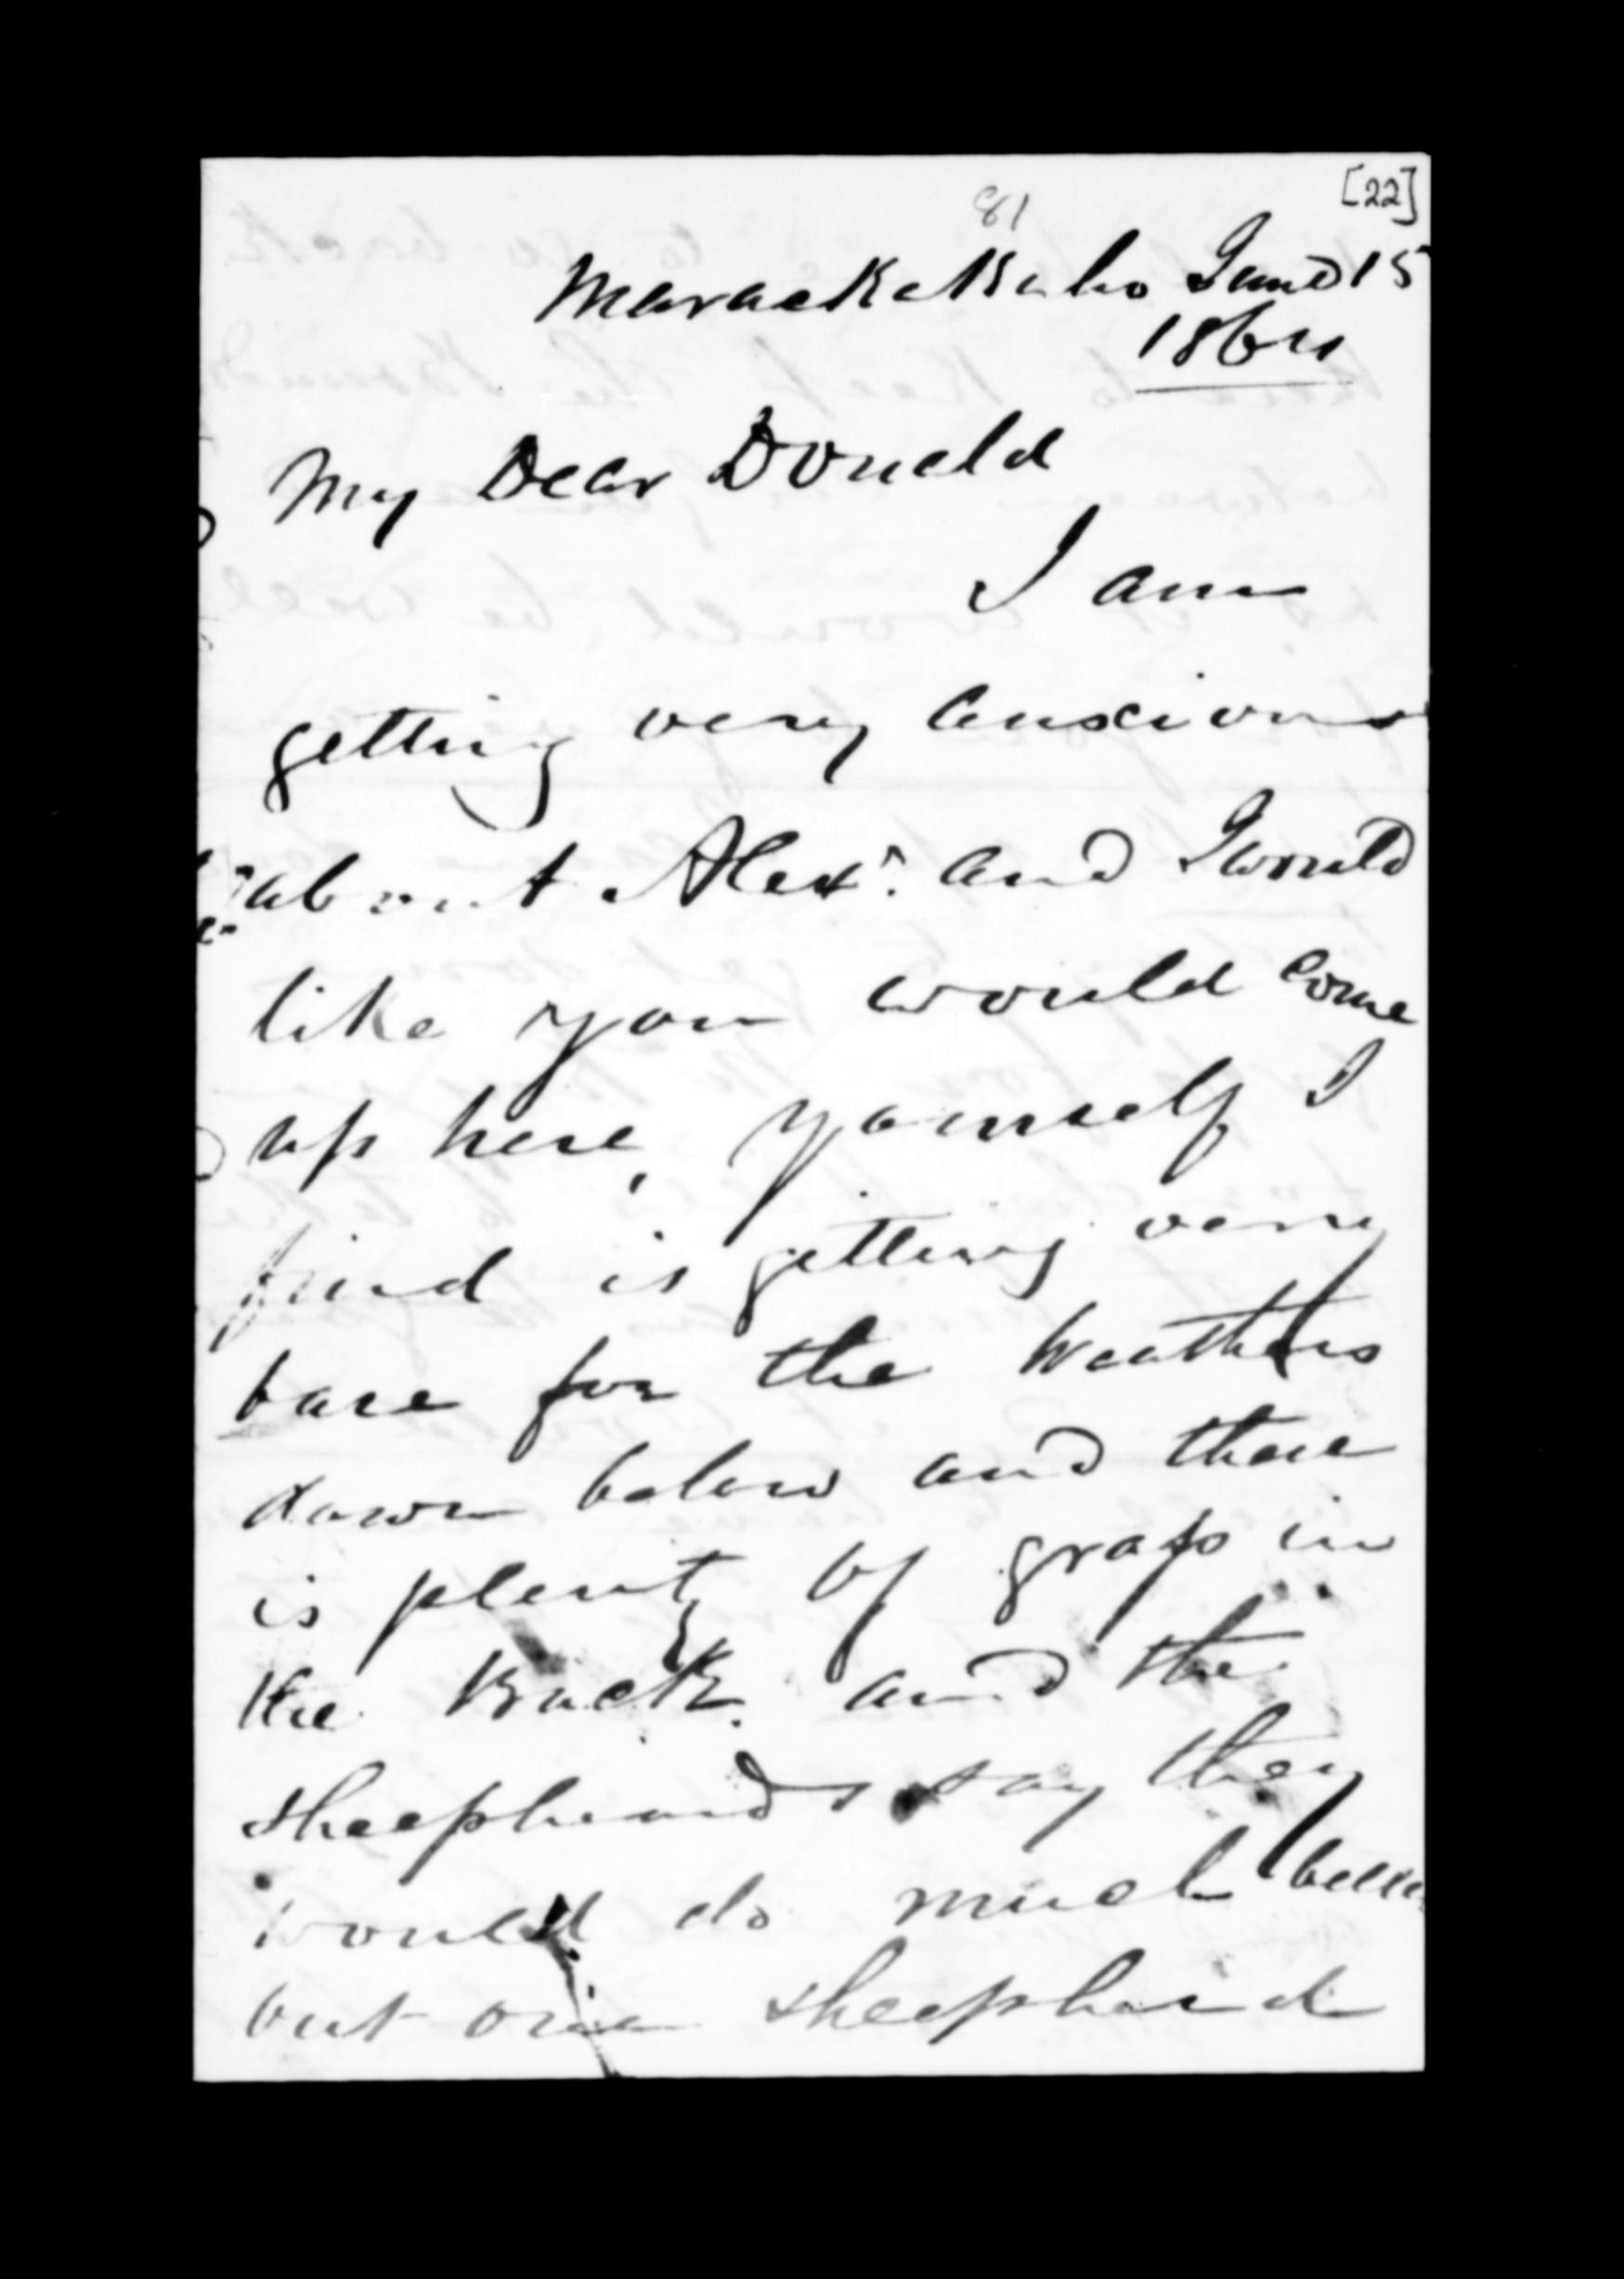 [22]
81
MaraeKaKaho June 15
1864
My Dear Donald
I am
getting very anxious
about Alexr. and I would
like you would come
up here, yourself I
find is getting very
bare for the Weathers
down below and there
is plenty of grass in
the Back. and the
sheepheards say they
would do much better
but one sheepherd